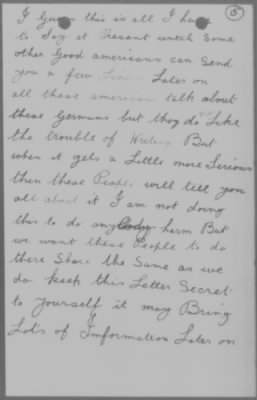 5
I Guess this is all I have
to Say at Present until Some
other Good americans can Send
you a few Lines Later on
all these american talk about
these Germans but they do not Like
the trouble of Writing But
when it gets a Little more Serious
then these People will tell you
all about it I am not doing
this to do anybody harm But
we want these People to do
there Share the Same as we
do keep this Letter Secret
to yourself it may Bring
Lots of Imformation Later on